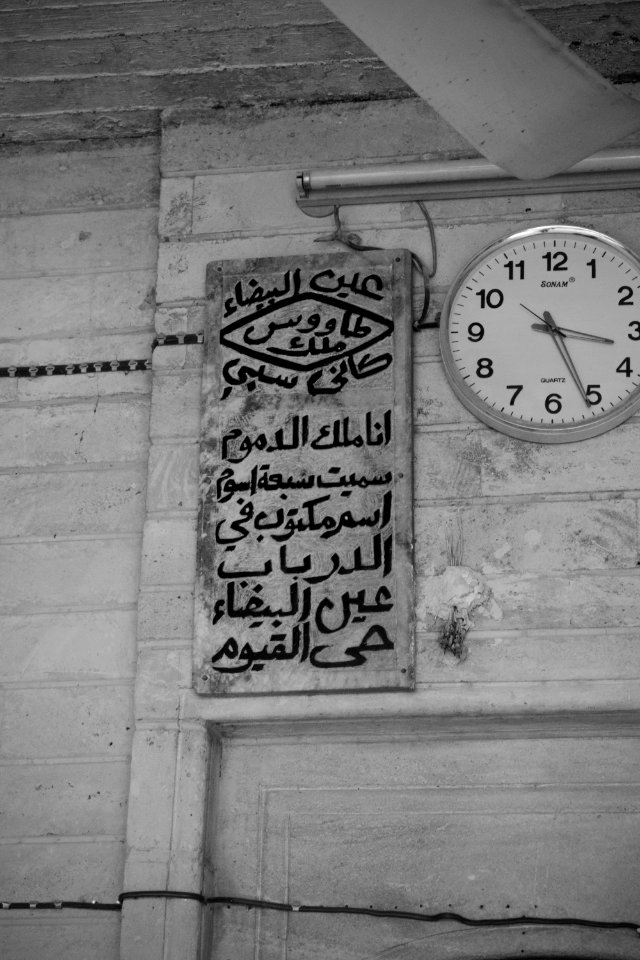 عين البيضاء
طاووس
ملك
كانى سبي
انا ملك الدموم
سميت سبعة اسوم
اسمر مكتوب في
الدرباب
عين البيضاء
حى القيوم
12
1
2
3
4
5
6
7
8
9
10
11
SONAM®
QUARTZ